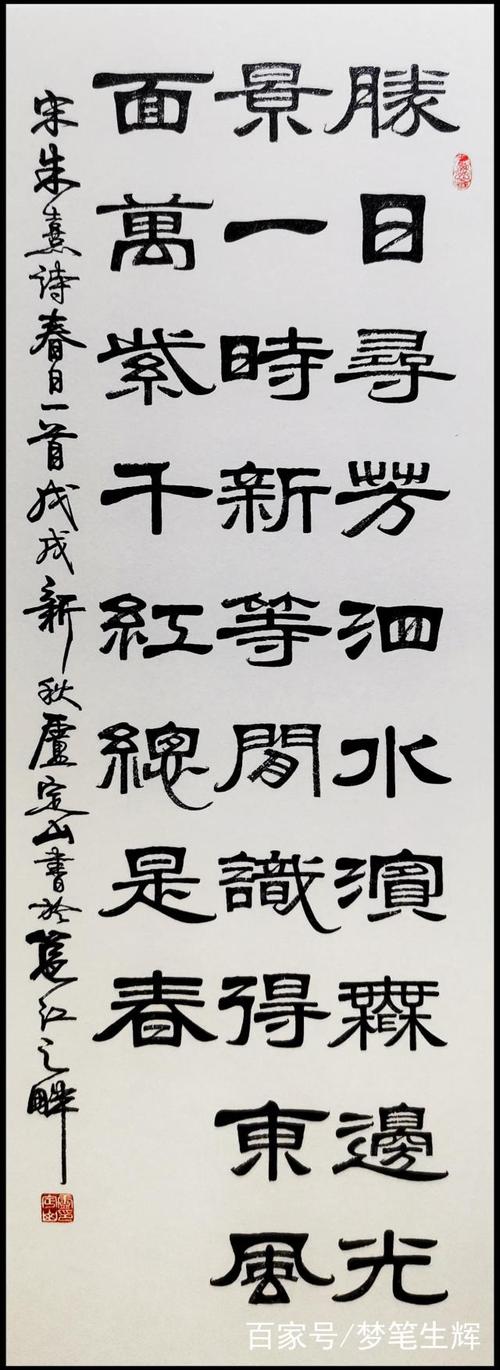 勝日尋芳泗水濱無邊光
景一時新等閒識得東風
面萬紫千紅總是春
宋朱熹诗春日一首戊戌新秋盧定山書於邕江之畔
百家号/梦笔生辉